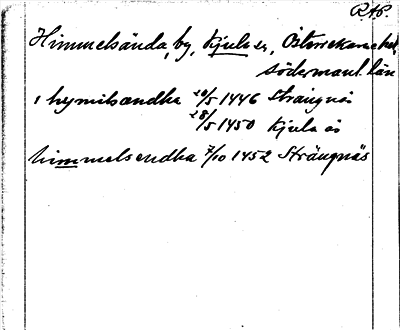 RAP.
Himmelsända, by, Kjula sn, Österrekarne hd,
södermanl. län
i hymilsændha 20/5 1446 Strängnäs
28/5 1450 Kjula ås
himmelsendha 7/10 1452 Strängnäs